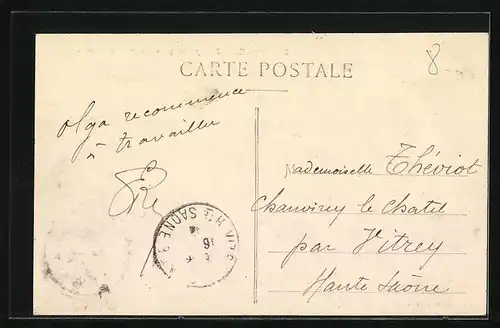 CARTE POSTALE
8
Olga recommence
à travailler
Mademoiselle Théviot
Chauvirey le Chatel
par Vitrey
Haute Saône
HTE SAONE
16